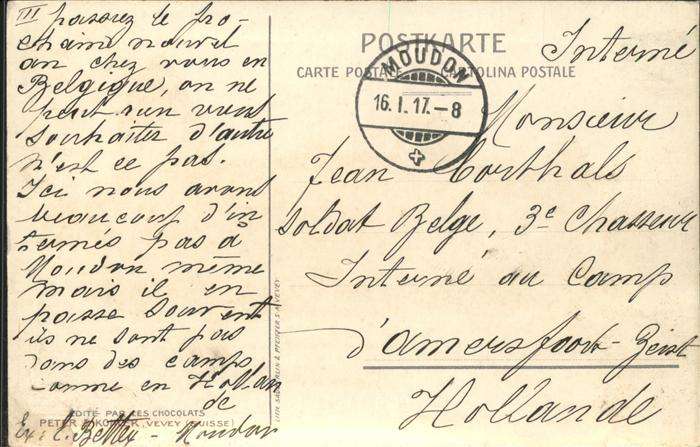 III passiez le pro-
chain nouvel
an chez vous en
Belgique, on ne
peut rien vous
souhaiter d'autre
n'est ce pas.
Ici nous avons
beaucoup d'in
ternés pas à
Moudon même
mais il en
passe souvent
ils ne sont pas
dans des camps
comme en Hollan
de
Ex: C. Bettex - Moudon
ÉDITÉ PAR LES CHOCOLATS
PETER KOHLER, VEVEY (SUISSE)
LITH. SÄUBERLIN & PFEIFFER S.A. VEVEY
POSTKARTE
CARTE POSTALE CARTOLINA POSTALE
MOUDON
16. I. 17. - 8
Interné
Monsieur
Jean Corthals
Soldat Belge, 3e Chasseur
Interné au Camp
d'amersfoort-Zeist
Hollande